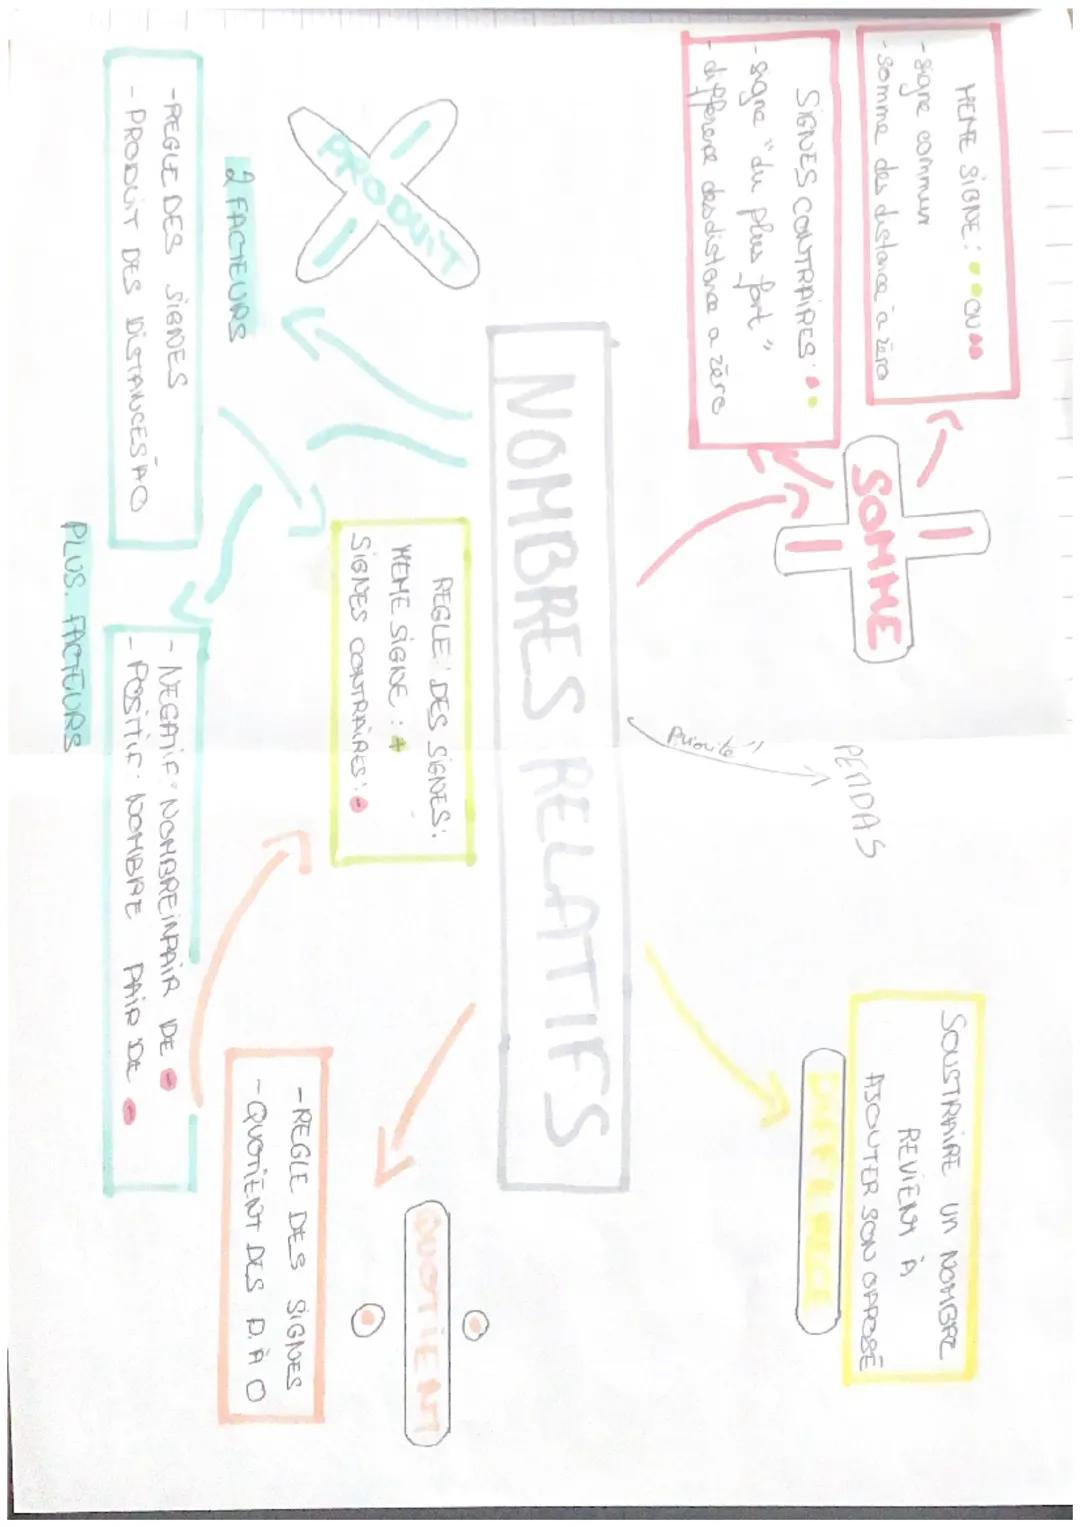 MEME SIGNE : ●● OU ●●
- signe commun
- somme des distance à zéro
SIGNES CONTRAIRES : ●●
- signe "du plus fort"
- différence des distance a zéro
SOMME
Priorité
PEMDAS
SOUSTRAIRE UN NOMBRE
REVIENT À
AJOUTER SON OPPOSÉ
NOMBRES RELATIFS
PRODUIT
2 FACTEURS
- REGLE DES SIGNES
- PRODUIT DES DISTANCES À 0
REGLE DES SIGNES :
MEME SIGNE : +
SIGNES CONTRAIRES : -
PLUS. FACTEURS
- NEGATIF : NOMBRE INPAIR DE -
- POSITIF : NOMBRE PAIR DE -
QUOTIENT
- REGLE DES SIGNES
- QUOTIENT DES D. À 0